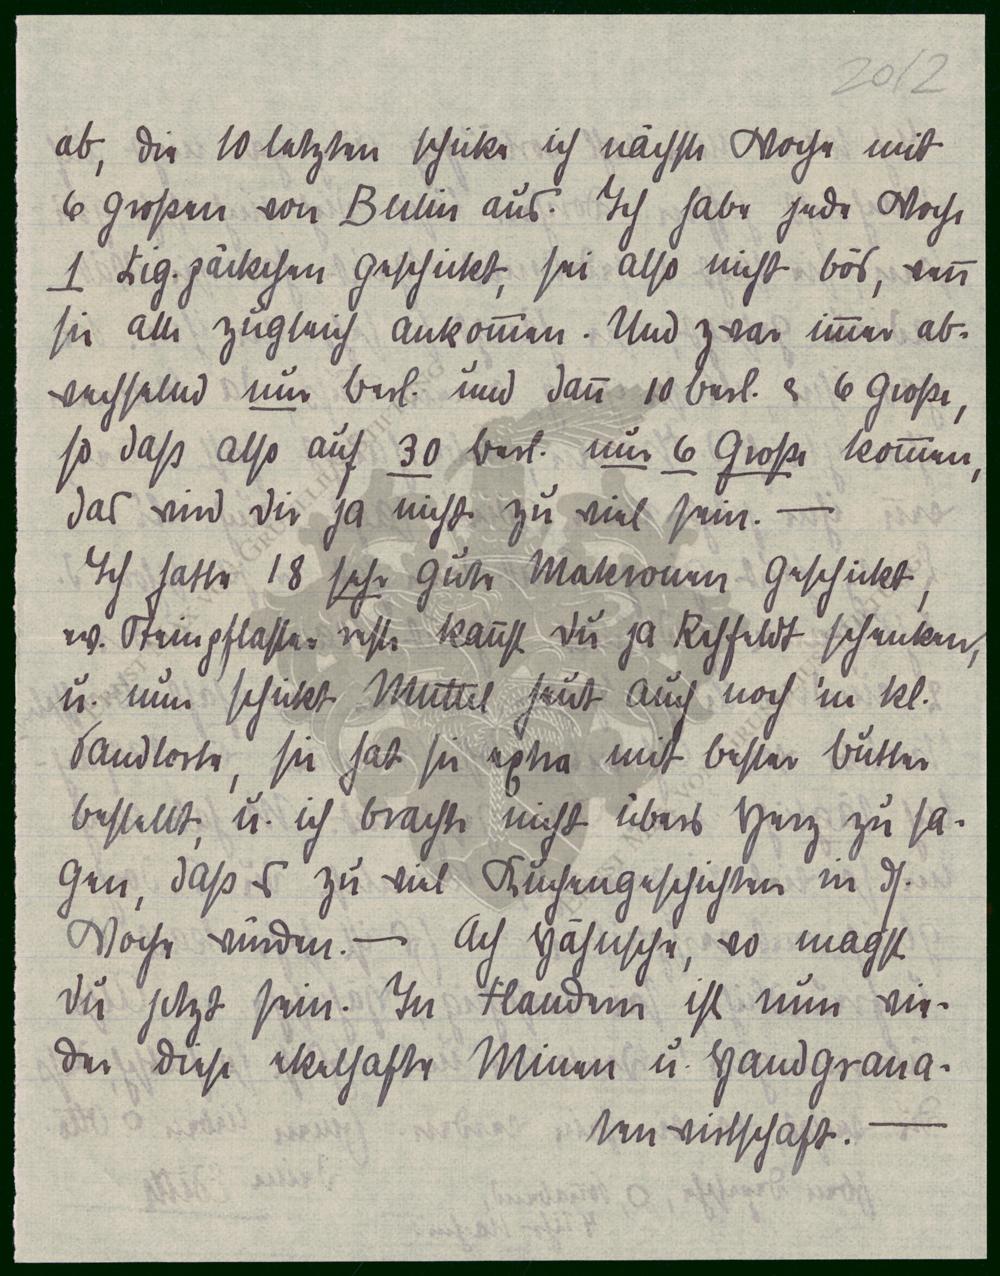 20/2
ab, die 10 letzten schicke ich nächste Woche mit
6 großen von Berlin aus. Ich habe jede Woche
1 Zig. päckchen geschickt, sei also nicht bös, wen̅
sie alle zugleich ankom̅en. Und zwar im̅er ab-
wechselnd nur berl. und dan̅ 10 berl. & 6 Große,
so daß also auf 30 berl. nur 6 Große kom̅en,
das wird dir ja nicht zu viel sein. —
Ich hatte 18 sehr gute Makronen geschickt,
ev. Steinpflaster reste kan̅st du ja Rehfeldt schenken,
u. nun schickt Muttel heut auch noch 'n kl.
Sandtorte, sie hat sie extra mit bester Butter
bestellt, u. ich brachte nicht übers Herz zu sa-
gen, daß es zu viel Kuchengeschichten in d.
Woche würden. — Ach Hähnsche, wo magst
du jetzt sein. In Flandern ist nun wie-
der diese ekelhafte Minen u. Handgrana-
ten wirtschaft. —